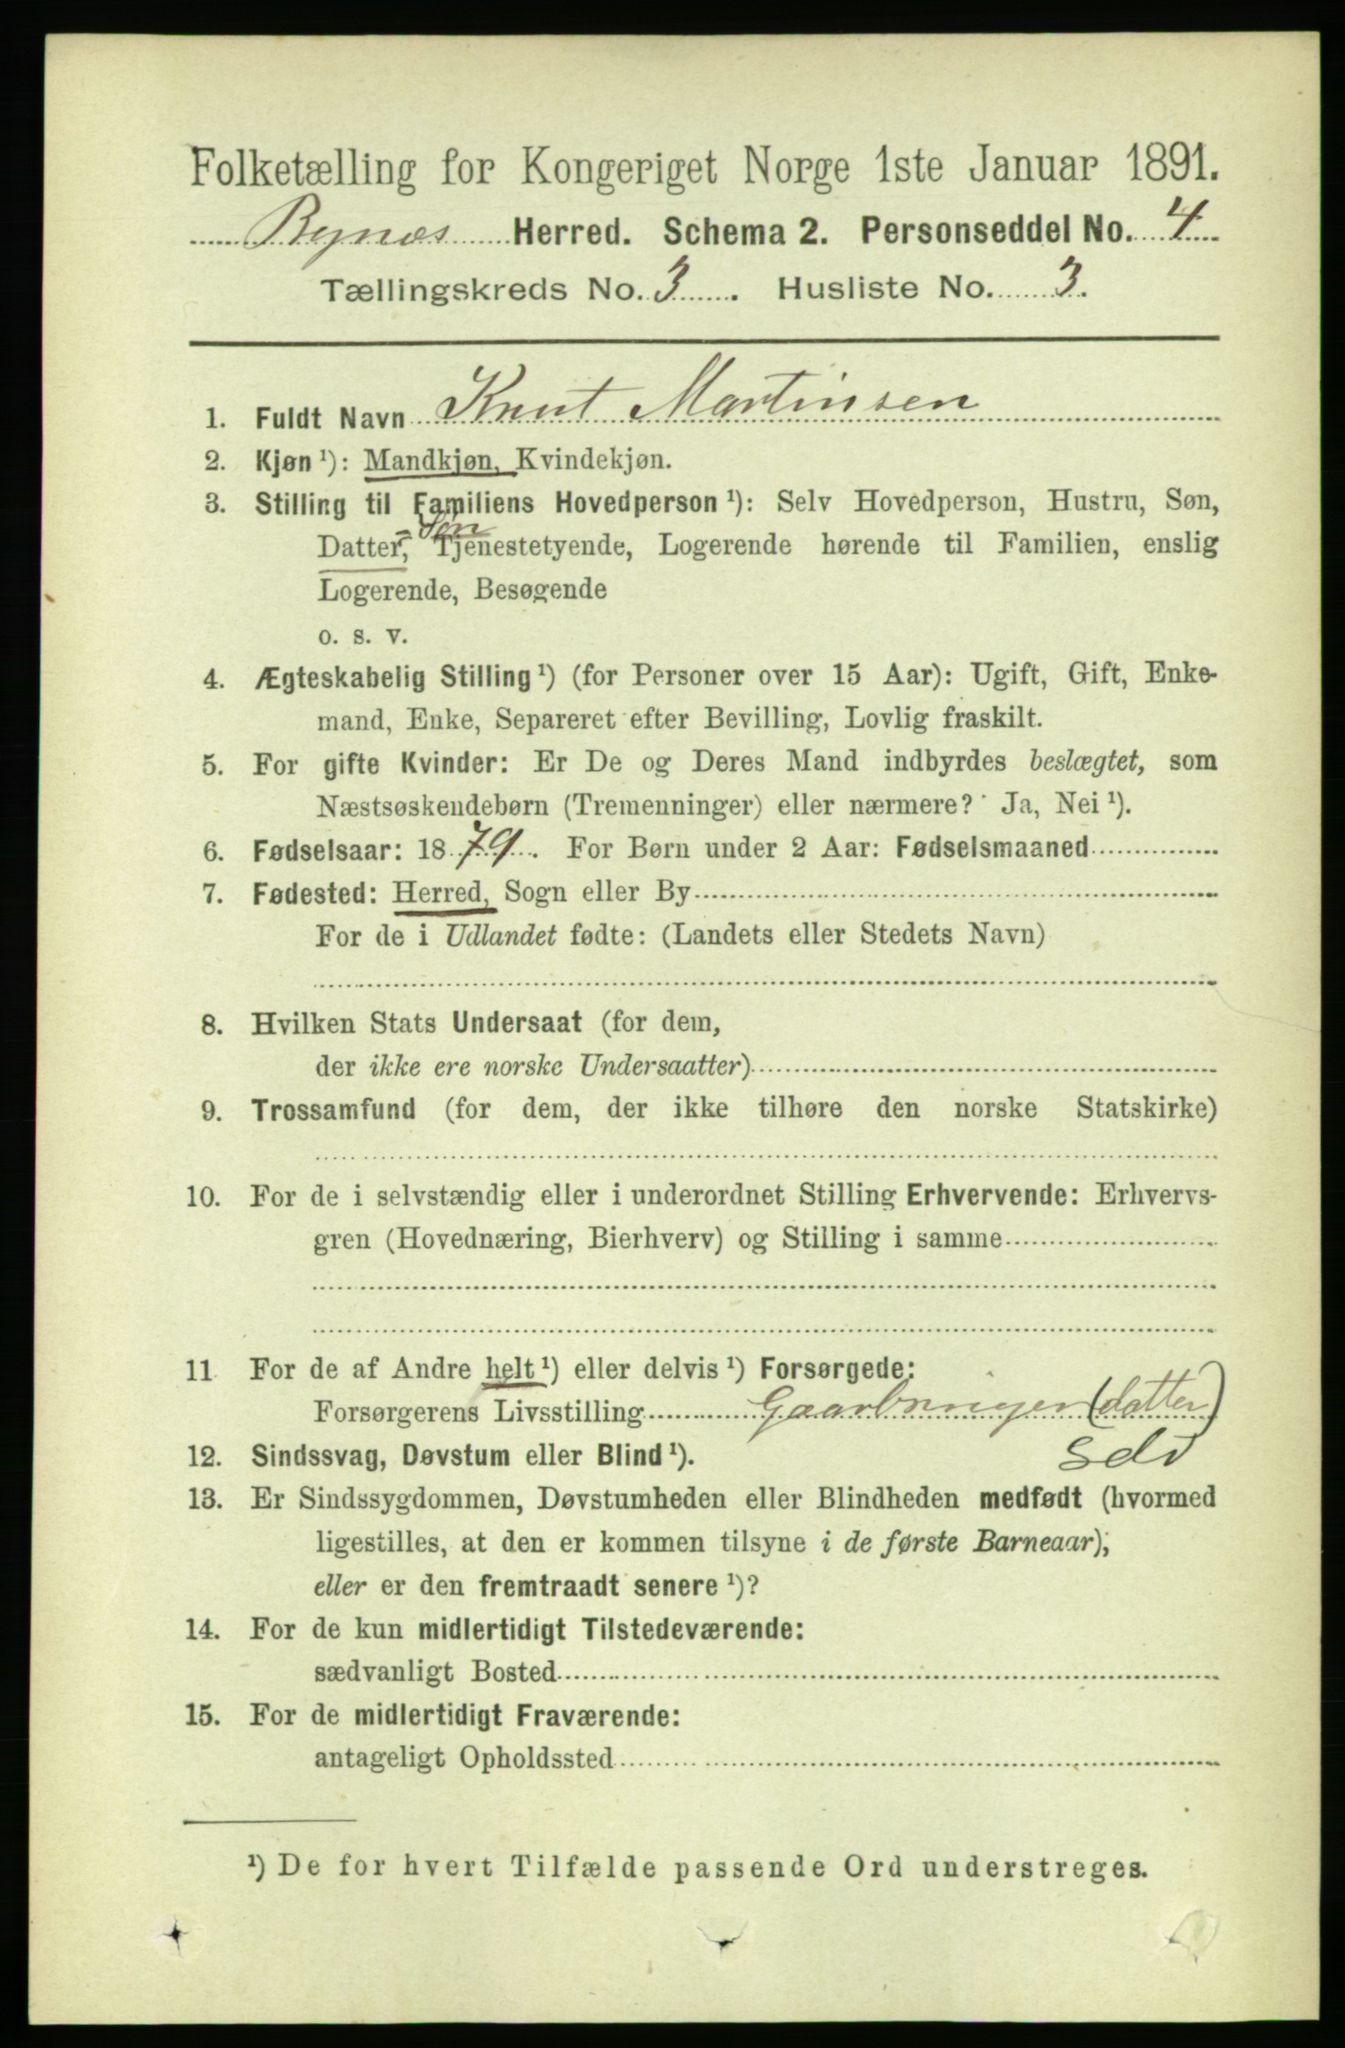 Folketælling for Kongeriget Norge 1ste Januar 1891.
Bynæs Herred. Schema 2. Personseddel No. 4
Tællingskreds No. 3. Husliste No. 3.
1. Fuldt Navn Knut Martinsen
2. Kjøn ¹): Mandkjøn, Kvindekjøn.
3. Stilling til Familiens Hovedperson ¹): Selv Hovedperson, Hustru, Søn,
Søn
Datter, Tjenestetyende, Logerende hørende til Familien, enslig
Logerende, Besøgende
o. s. v.
4. Ægteskabelig Stilling ¹) (for Personer over 15 Aar): Ugift, Gift, Enke-
mand, Enke, Separeret efter Bevilling, Lovlig fraskilt.
5. For gifte Kvinder: Er De og Deres Mand indbyrdes beslægtet, som
Næstsøskendebørn (Tremenninger) eller nærmere? Ja, Nei ¹).
6. Fødselsaar: 1879. For Børn under 2 Aar: Fødselsmaaned
7. Fødested: Herred, Sogn eller By
For de i Udlandet fødte: (Landets eller Stedets Navn)
8. Hvilken Stats Undersaat (for dem,
der ikke ere norske Undersaatter)
9. Trossamfund (for dem, der ikke tilhøre den norske Statskirke)
10. For de i selvstændig eller i underordnet Stilling Erhvervende: Erhvervs-
gren (Hovednæring, Bierhverv) og Stilling i samme
11 For de af Andre helt ¹) eller delvis ¹) Forsørgede:
Forsørgerens Livsstilling Gaarbruger (datter)
12. Sindssvag, Døvstum eller Blind ¹).
13. Er Sindssygdommen, Døvstumheden eller Blindheden medfødt (hvormed
ligestilles, at den er kommen tilsyne i de første Barneaar);
eller er den fremtraadt senere ¹)?
14. For de kun midlertidigt Tilstedeværende:
sædvanligt Bosted
15. For de midlertidigt Fraværende:
antageligt Opholdssted
¹) De for hvert Tilfælde passende Ord understreges.